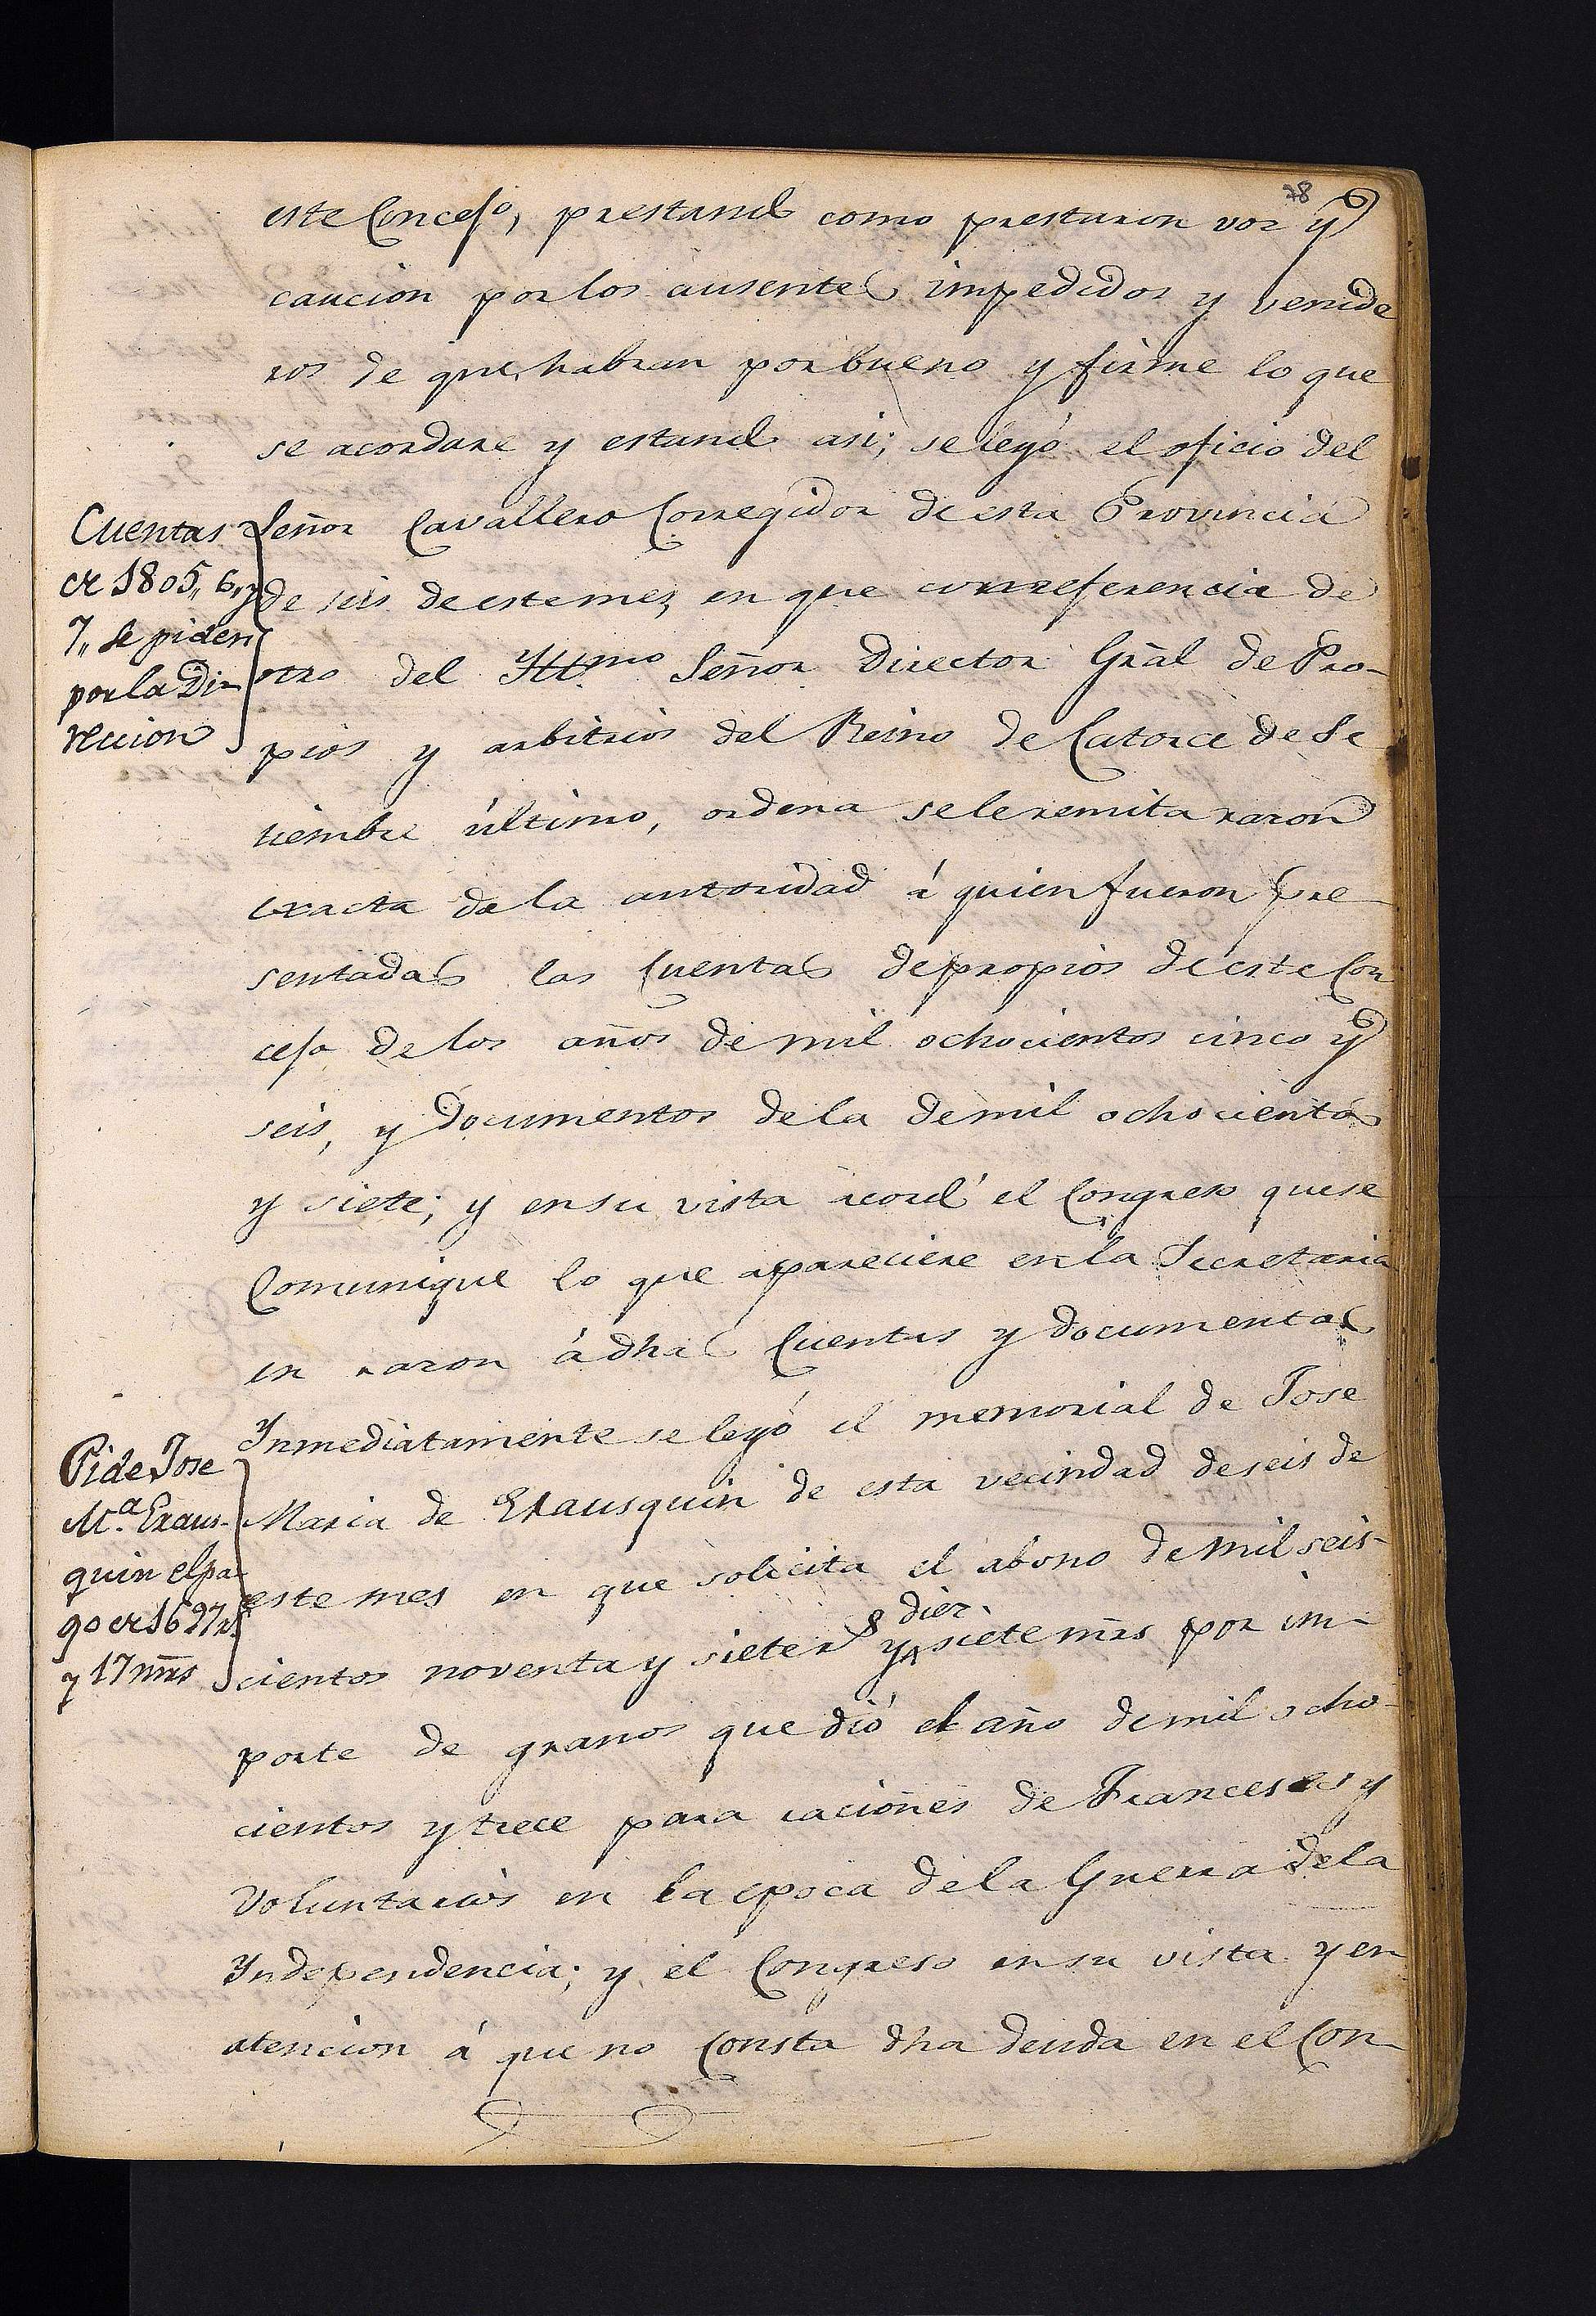 78
este Concejo, prestando como prestaron voz y
caucion por los ausentes impedidos y venide
ros de que habran por bueno y firme lo que
se acordare y estando asi; se leyó el oficio del
Cuentas
de 1805,, 6,, y
7,, se piden
por la Di-
reccion
Señor Cavallero Corregidor de esta Provincia
de seis de este mes, en que con referencia de
otro del Yllmo Señor Director Gral de Pro-
pios y arbitrios del Reino de Catorce de Se
tiembre último, ordena se le remita razon
exacta de la autoridad á quien fueron pre
sentadas las Cuentas de propios de este Con
cejo de los años de mil ochocientos cinco y
seis, y documentos de la de mil ochocientos
y siete; y en su vista acordó el Congreso que se
Comunique lo que apareciere en la Secretaria
en razon á dhas Cuentas y documentos
Pide Jose
Ma. Eraus-
quin el pa-
go de 1697 rs
y 17 mrs
Ynmediatamente se leyó el memorial de Jose
Maria de Erausquin de esta vecindad de seis de
este mes en que solicita el abono de mil seis-
cientos noventa y siete rs y diez siete mrs por im-
porte de granos que dió el año de mil ocho-
cientos y trece para raciones de Franceses y
Voluntarios en la epoca de la Guerra de la
Yndependencia; y el Congreso en su vista y en
atencion á que no Consta dha deuda en el Con-